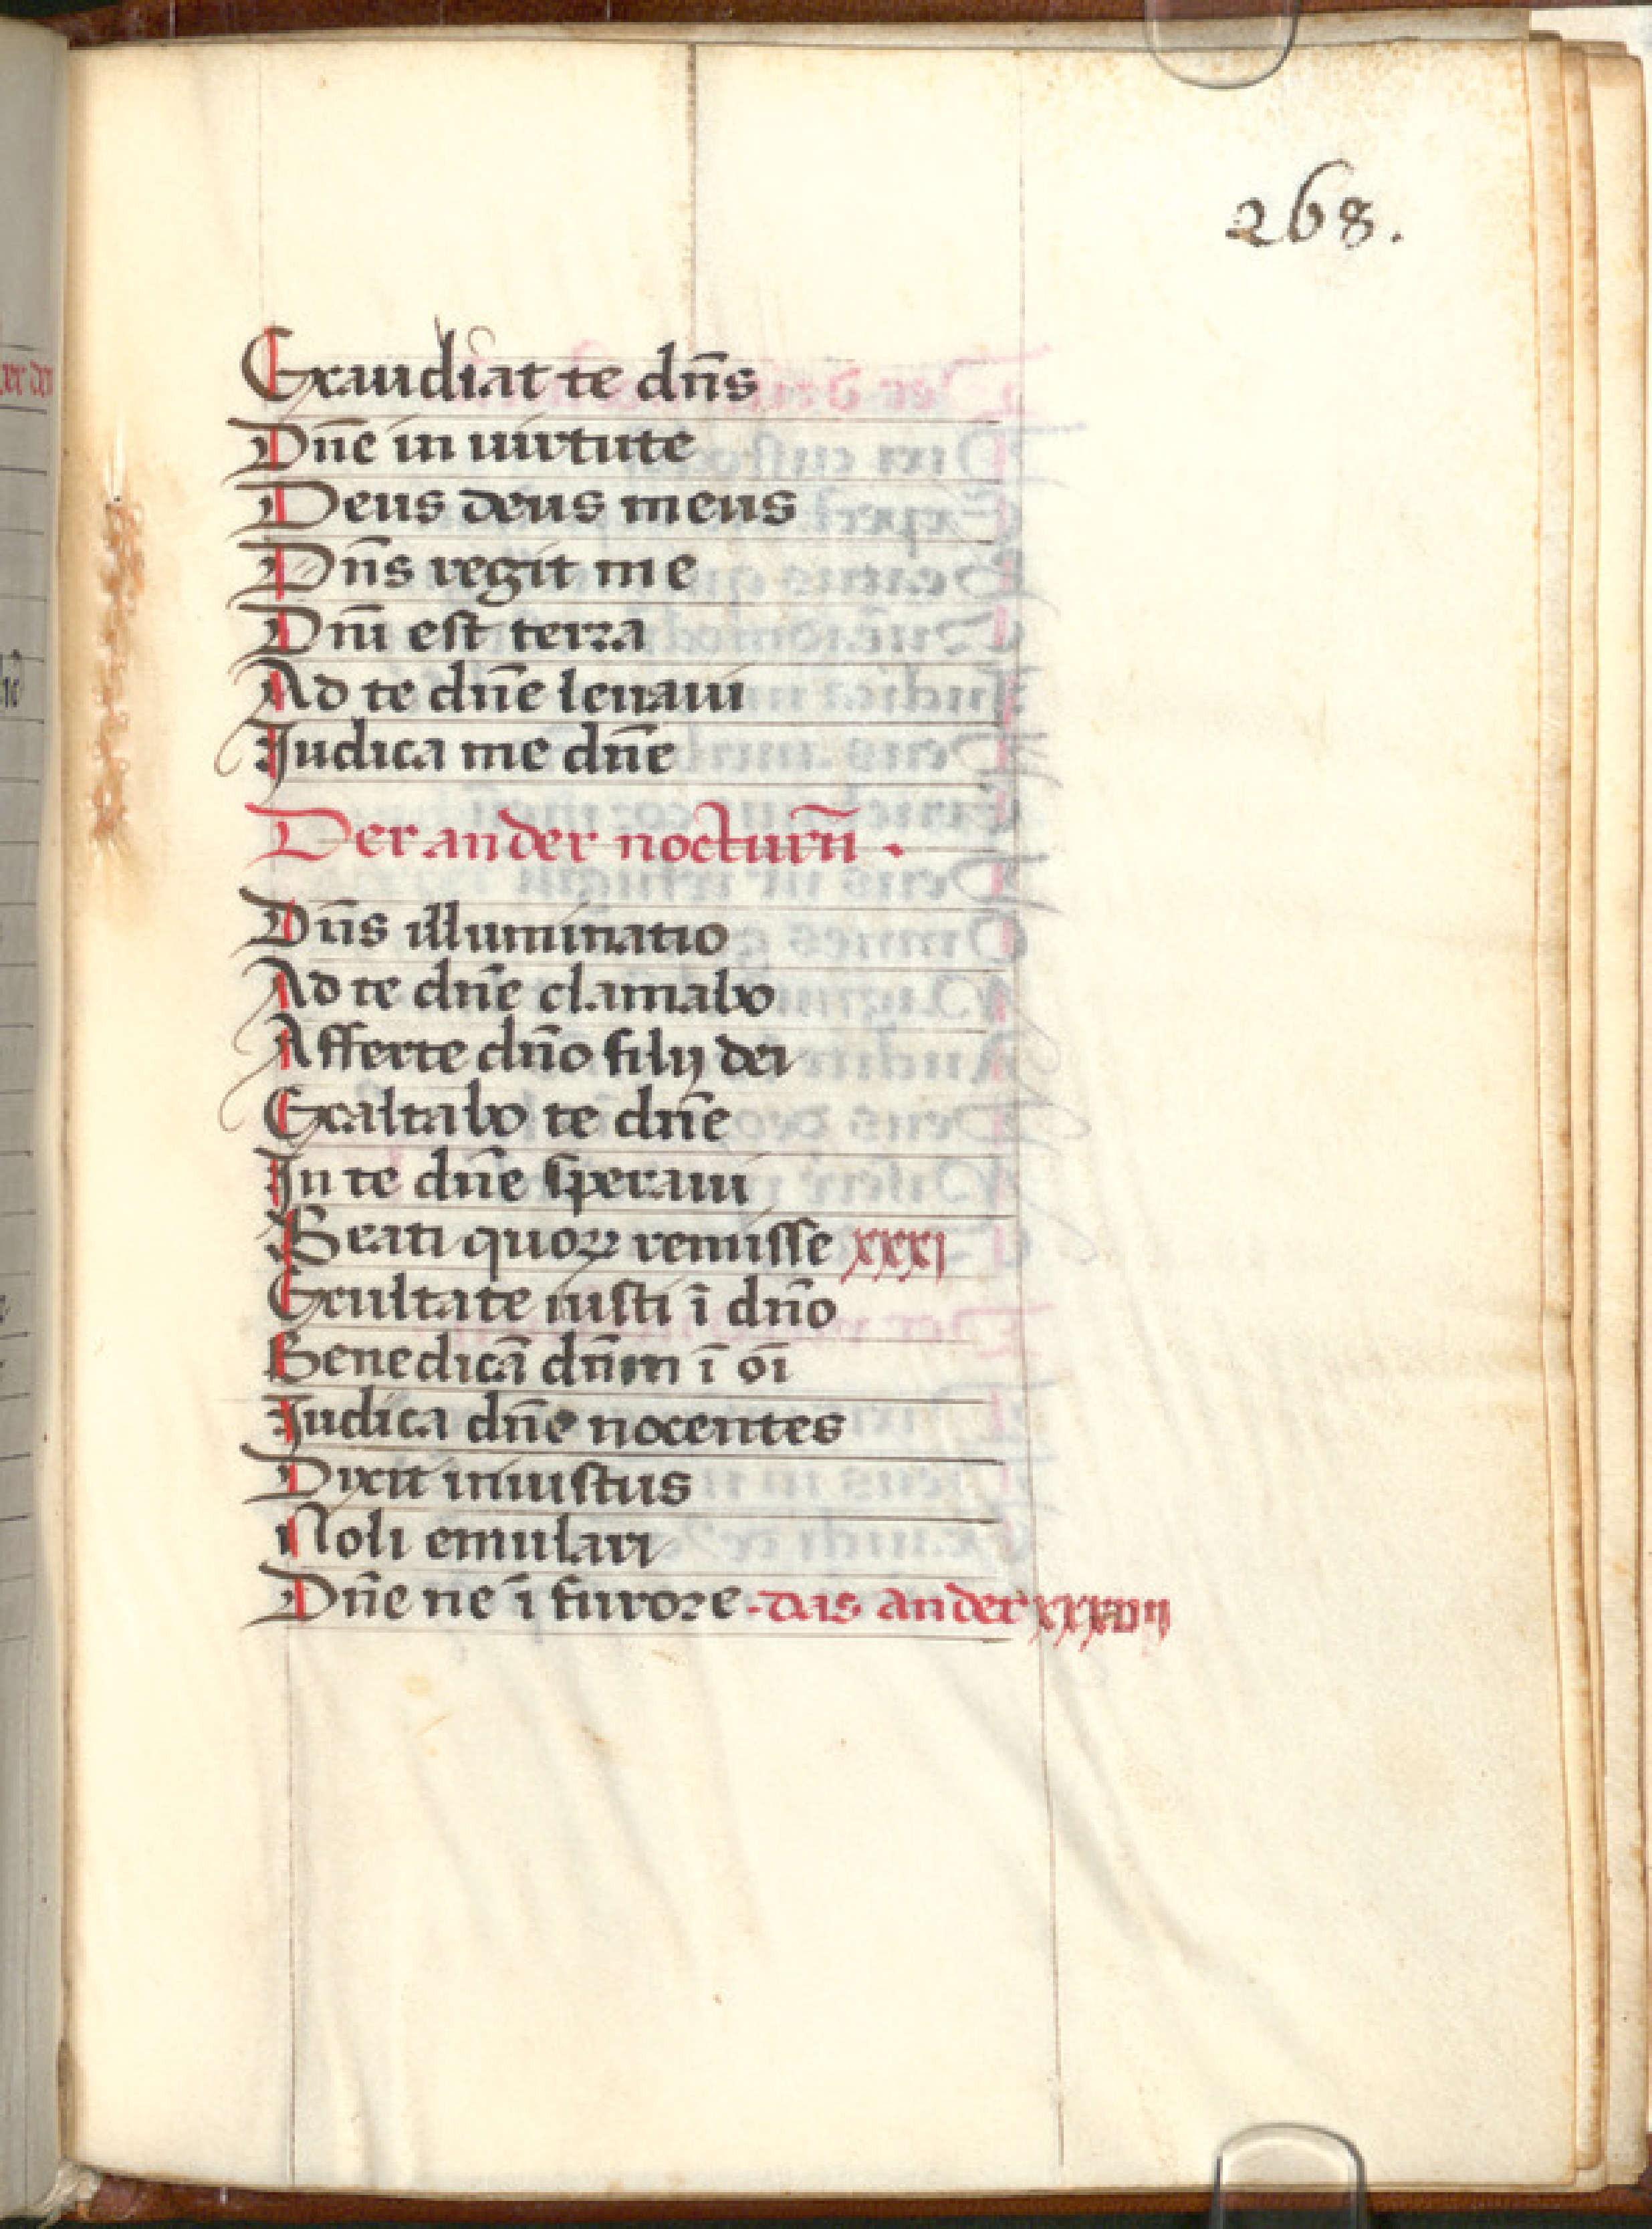 268.
Exaudiat te dn̄s
Dn̄e in uirtute
Deus deus meus
Dn̄s regit me
Dn̄i est terra
Ad te dn̄e leuaui
Judica me dn̄e
Der ander nocturn̄ .
Dn̄s illuminatio
Ad te dn̄e clamabo
Afferte dn̄o filij dei
Exaltabo te dn̄e
In te dn̄e speraui
Beati quoꝝ remisse xxxj
Exultate iusti ī dn̄o
Benedicā dn̄m ī oī
Judica dn̄e nocentes
Dixit iniustus
Noli emulari
Dn̄e ne ī furore. das ander xxxvij